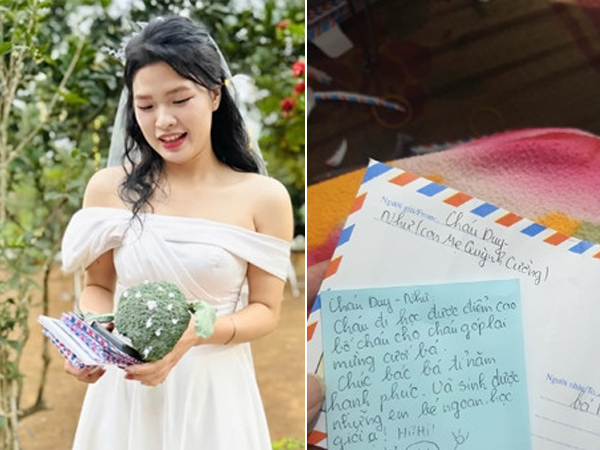 Người gửi/From: Cháu Duy-
Như (con Mẹ Quỳnh Cường)
Cháu Duy - Như.
Cháu đi học được điểm cao
bố cháu cho cháu góp lại
mừng cưới bá.
Chúc bác bá tỉ năm
hạnh phúc. Và sinh được
những em bé ngoan, học
giỏi ạ! Hi!Hi!
Người nhận/To:
bá